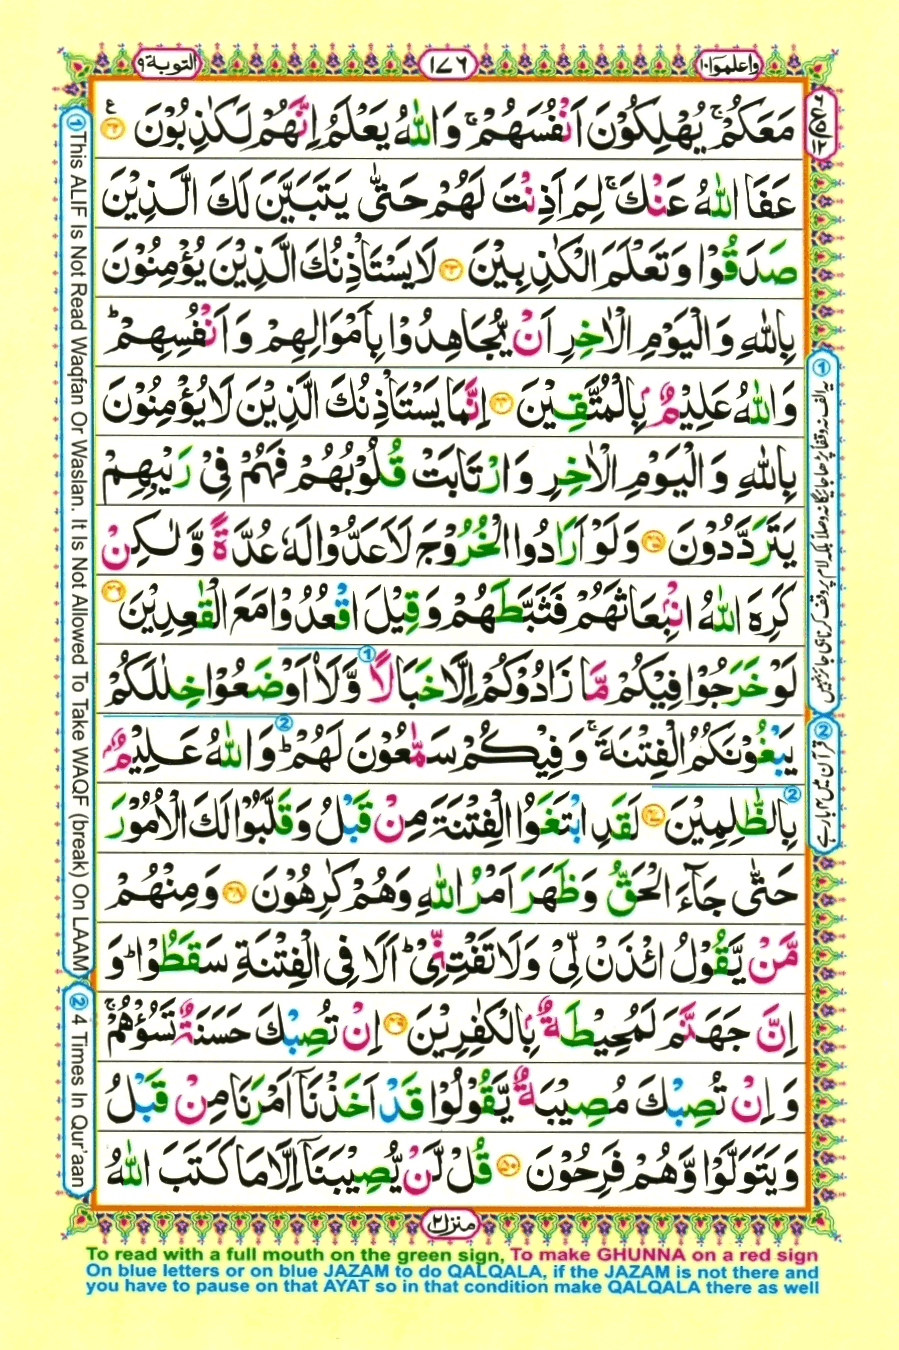 واعلموا ١٠
١٧٦
التوبة ٩
مَعَكُمْ ۚ يُهْلِكُوْنَ اَنْفُسَهُمْ ۚ وَاللّٰهُ يَعْلَمُ اِنَّهُمْ لَكٰذِبُوْنَ ﴿٤٢﴾ ع
عَفَا اللّٰهُ عَنْكَ ۚ لِمَ اَذِنْتَ لَهُمْ حَتّٰى يَتَبَيَّنَ لَكَ الَّذِيْنَ
صَدَقُوْا وَتَعْلَمَ الْكٰذِبِيْنَ ﴿٤٣﴾ لَا يَسْتَاْذِنُكَ الَّذِيْنَ يُؤْمِنُوْنَ
بِاللّٰهِ وَالْيَوْمِ الْاٰخِرِ اَنْ يُّجَاهِدُوْا بِاَمْوَالِهِمْ وَاَنْفُسِهِمْ ؕ
وَاللّٰهُ عَلِيْمٌۢ بِالْمُتَّقِيْنَ ﴿٤٤﴾ اِنَّمَا يَسْتَاْذِنُكَ الَّذِيْنَ لَا يُؤْمِنُوْنَ
بِاللّٰهِ وَالْيَوْمِ الْاٰخِرِ وَارْتَابَتْ قُلُوْبُهُمْ فَهُمْ فِيْ رَيْبِهِمْ
يَتَرَدَّدُوْنَ ﴿٤٥﴾ وَلَوْ اَرَادُوا الْخُرُوْجَ لَاَعَدُّوْا لَهٗ عُدَّةً وَّلٰكِنْ
كَرِهَ اللّٰهُ انْۢبِعَاثَهُمْ فَثَبَّطَهُمْ وَقِيْلَ اقْعُدُوْا مَعَ الْقٰعِدِيْنَ ﴿٤٦﴾
لَوْ خَرَجُوْا فِيْكُمْ مَّا زَادُوْكُمْ اِلَّا خَبَالًا وَّلَاۡاَوْضَعُوْا خِلٰلَكُمْ
يَبْغُوْنَكُمُ الْفِتْنَةَ ۚ وَفِيْكُمْ سَمّٰعُوْنَ لَهُمْ ؕ وَاللّٰهُ عَلِيْمٌۢ
بِالظّٰلِمِيْنَ ﴿٤٧﴾ لَقَدِ ابْتَغَوُا الْفِتْنَةَ مِنْ قَبْلُ وَقَلَّبُوْا لَكَ الْاُمُوْرَ
حَتّٰى جَآءَ الْحَقُّ وَظَهَرَ اَمْرُ اللّٰهِ وَهُمْ كٰرِهُوْنَ ﴿٤٨﴾ وَمِنْهُمْ
مَّنْ يَّقُوْلُ ائْذَنْ لِّيْ وَلَا تَفْتِنِّيْ ؕ اَلَا فِي الْفِتْنَةِ سَقَطُوْا ؕ وَ
اِنَّ جَهَنَّمَ لَمُحِيْطَةٌۢ بِالْكٰفِرِيْنَ ﴿٤٩﴾ اِنْ تُصِبْكَ حَسَنَةٌ تَسُؤْهُمْ ۚ
وَاِنْ تُصِبْكَ مُصِيْبَةٌ يَّقُوْلُوْا قَدْ اَخَذْنَاۤ اَمْرَنَا مِنْ قَبْلُ
وَيَتَوَلَّوْا وَّهُمْ فَرِحُوْنَ ﴿٥٠﴾ قُلْ لَّنْ يُّصِيْبَنَاۤ اِلَّا مَا كَتَبَ اللّٰهُ
منزل ٢
① This ALIF Is Not Read Waqfan Or Waslan. It Is Not Allowed To Take WAQF (break) On LAAM
② 4 Times In Qur'aan
① یہ الف نہ وقفاً پڑھا جائیگا نہ وصلاً بلکہ لام پر وقف کرنا ہی جائز نہیں
② قرآن میں ۴ بار ہے
To read with a full mouth on the green sign, To make GHUNNA on a red sign
On blue letters or on blue JAZAM to do QALQALA, if the JAZAM is not there and
you have to pause on that AYAT so in that condition make QALQALA there as well